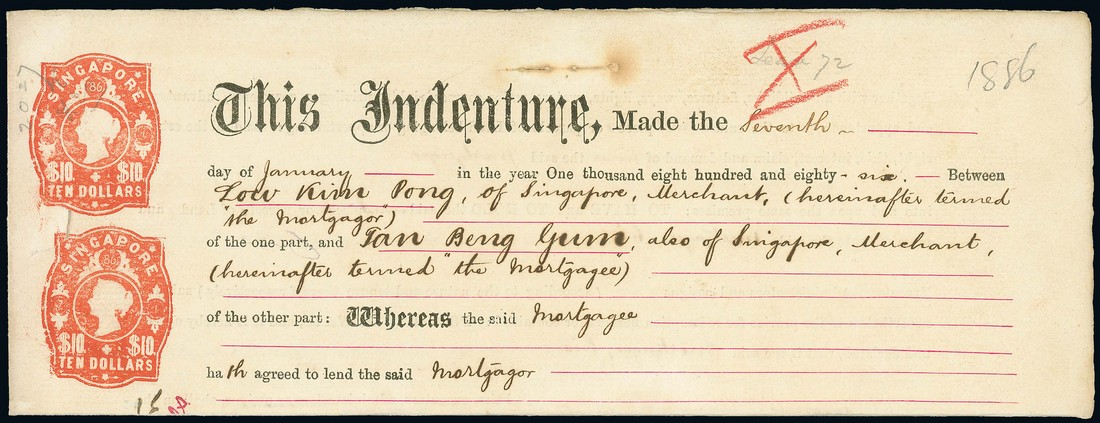 SINGAPORE
86
$10 $10
TEN DOLLARS
SINGAPORE
86
$10 $10
TEN DOLLARS
2027
72
1886
This Indenture, Made the Seventh
day of January in the year One thousand eight hundred and eighty-six. Between
Low Kim Pong, of Singapore, Merchant, (hereinafter termed
the Mortgagor")
of the one part, and Tan Beng Gum, also of Singapore, Merchant,
(hereinafter termed "the Mortgagee")
of the other part: Whereas the said Mortgagee
hath agreed to lend the said Mortgagor
15